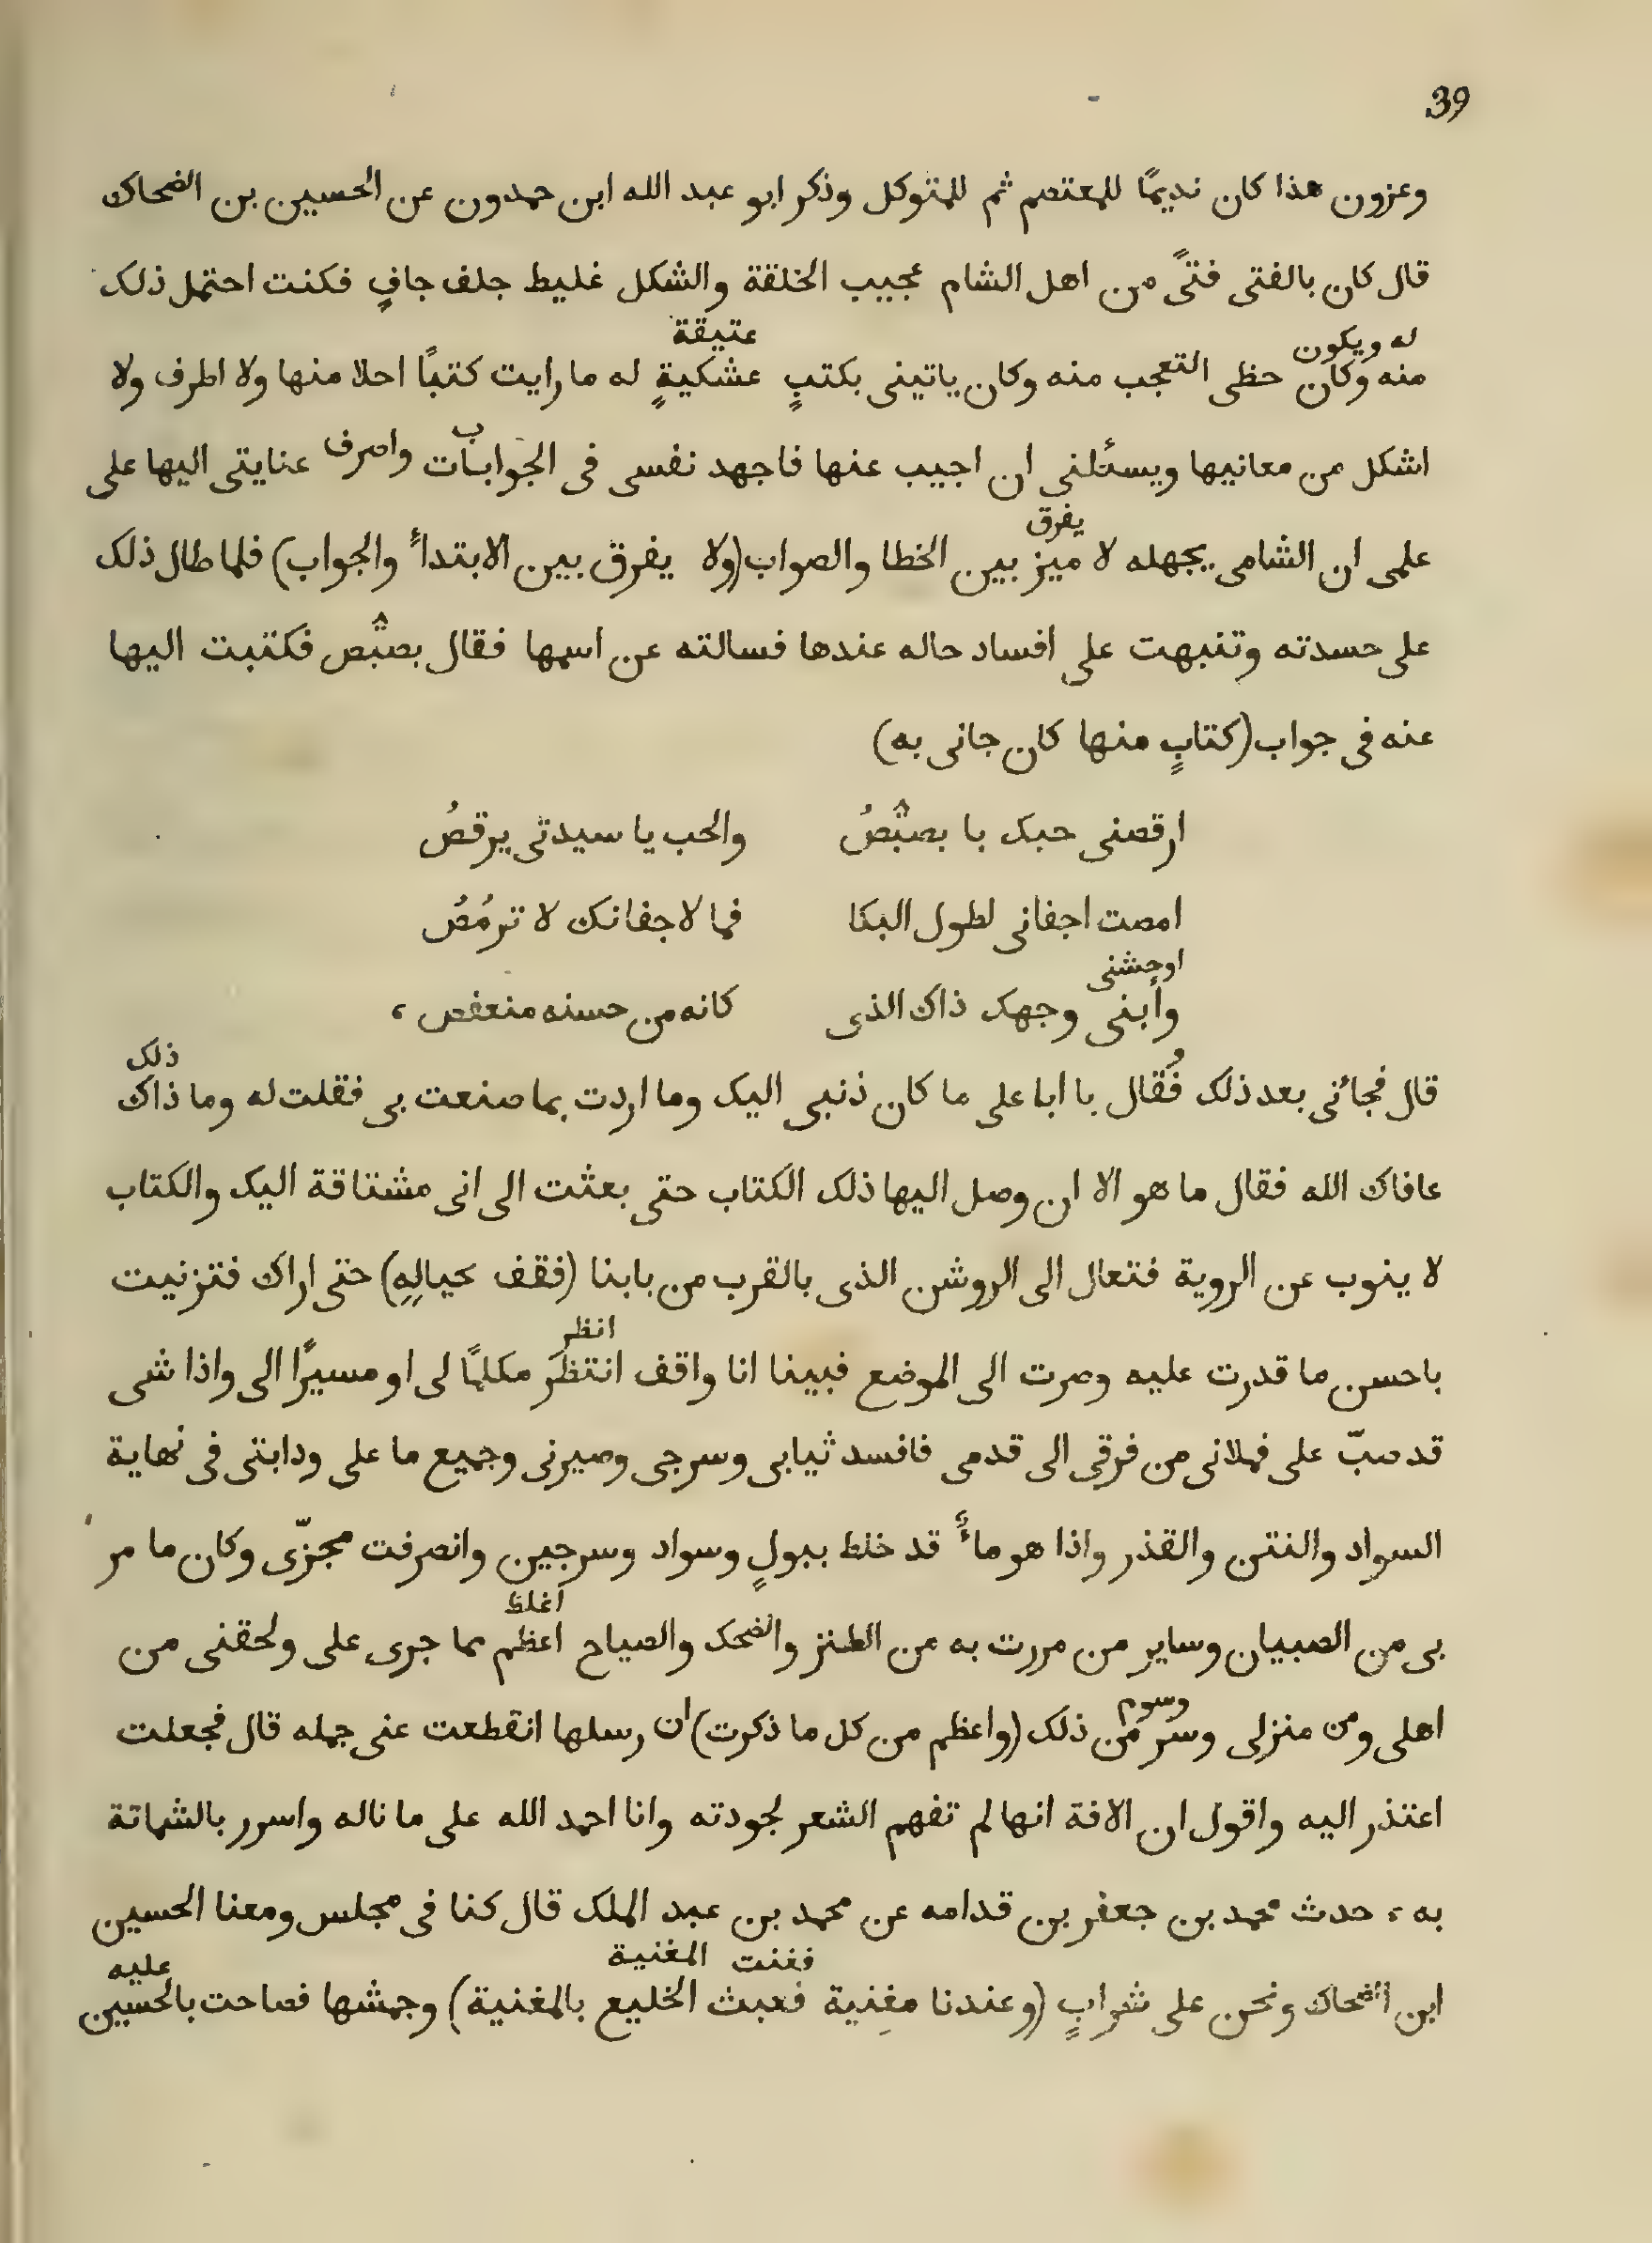 39
وعزون هذا كان نديمًا للمعتصم ثم للمتوكل وذكر ابو عبد الله ابن حمدون عن الحسين بن الضحاك
قال كان بالفتى فتىً من اهل الشام عجيب الخلقة والشكل غليظ جلف جافٍ فكنت احتمل ذلك
له ويكون عتيقة
منه وكان حظى التعجب منه وكان ياتينى بكتبٍ عشكيةٍ له ما رايت كتبًا احلا منها ولا اظرف ولا
اشكل من معانيها ويسئلنى ان اجيب عنها فاجهد نفسى فى الجوابات واصرف عنايتى اليها على
يفرق
علمى ان الشامى بجهله لا ميز بين الخطا والصواب (ولا يفرق بين الابتدأ والجواب) فلما طال ذلك
على حسدته وتنبهت على افساد حاله عندها فسالته عن اسمها فقال بصبص فكتبت اليها
عنه فى جواب (كتابٍ منها كان جانى به)
ارقصنى حبك با بصبصُ والحب يا سيدتى يرقصُ
امصت اجفانى لطول البكا فما لاجفانك لا ترمُصُ
اوحشنى
وأبنى وجهك ذاك الذى كانه من حسنه منعفص ،
ذلك
قال فجائنى بعد ذلك فقال با ابا على ما كان ذنبى اليك وما اردت بما صنعت بى فقلت له وما ذاك
عافاك الله فقال ما هو الا ان وصل اليها ذلك الكتاب حتى بعثت الى انى مشتاقة اليك والكتاب
لا ينوب عن الروية فتعال الى الروشن الذى بالقرب من بابنا (فقف بحيالِهِ) حتى اراك فتزنيت
انظر
باحسن ما قدرت عليه وصرت الى الموضع فبينا انا واقف انتظر مكلمًا لى او مسيرًا الى واذا شى
قد صبّ على فملانى من فرقى الى قدمى فافسد ثيابى وسرجى وصيرنى وجميع ما على ودابتى فى نهاية
السواد والنتن والقذر واذا هو مأ قد خلط ببولٍ وسواد وسرجين وانصرفت مجزّى وكان ما مر
اغلظ
بى من الصبيان وساير من مررت به من الطنز والضحك والصياح اعظم مما جرى على ولحقنى من
وسوم
اهلى ومن منزلى وسر من ذلك (واعظم من كل ما ذكرت) ان رسلها انقطعت عنى جمله قال فجعلت
اعتذر اليه واقول ان الافة انها لم تفهم الشعر لجودته وانا احمد الله على ما ناله واسرر بالشماتة
به ، حدث محمد بن جعفر بن قدامه عن محمد بن عبد الملك قال كنا فى مجلس ومعنا الحسين
فغنت المغنية عليه
ابن الضحاك ونحن على شرابٍ (وعندنا مغنية فعبث الخليع بالمغنية) وجمشها فصاحت بالحسين